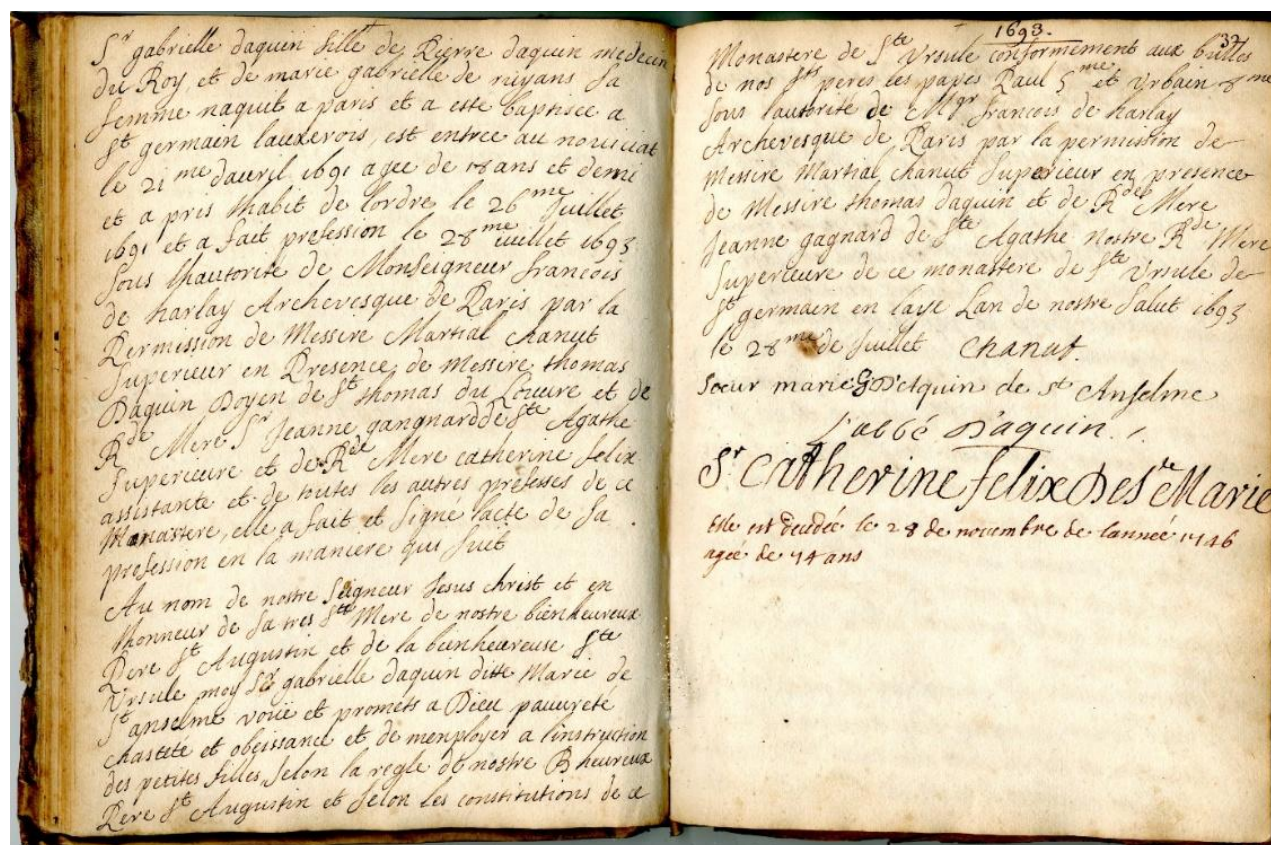 Sr gabrielle daquin fille de Pierre daquin medecin
du Roy, et de marie gabrielle de ruyans sa
femme naquit a paris et a este baptisee a
St germain lauxerois est entree au nouiciat
le 21 me dauril 1691 agee de 18 ans et demi
et a pris lhabit de lordre le 26 me Juillet
1691 et a fait profession le 28 me iuillet 1693
sous lhautorite de Monseigneur francois
de harlay Archevesque de Paris par la
Permission de Messire Martial chanut
Superieur en Presence de Messire thomas
Daquin Doyen de St thomas du Louure et de
Rde Mere Sr Jeanne gangnard de Ste Agathe
Superieure et de Rde Mere catherine felix
assistante et de toutes les autres professes de ce
Monastere, elle a fait et signé lacte de sa
profession en la maniere qui suit
Au nom de nostre Seigneur Jesus christ et en
lhonneur de sa tres Ste Mere de nostre bienheureux
Pere St Augustin et de la bienheureuse Ste
Vrsule moy Sr gabrielle daquin ditte Marie de
St anselme voüe et promets a Dieu pauureté
chasteté et obeissance et de menployer a linstruction
des petites filles selon la regle de nostre B heureux
Pere St Augustin et selon les constitutions de ce
1693.
37
Monastere de Ste Vrsule conformement aux bulles
de nos Sts peres les papes Paul 5 me et Vrbain 8 me
sous lautorite de Mgr francois de harlay
Archevesque de Paris par la permission de
Messire Martial chanut Superieur en presence
de Messire thomas daquin et de Rde Mere
Jeanne gagnard de Ste Agathe nostre Rde Mere
Superieure de ce monastere de Ste Vrsule de
St germain en laye Lan de nostre salut 1693
le 28 me de Juillet chanut
soeur marie G D'Aquin de st Anselme
L'abbé D'aquin.
Sr Catherine felix De Ste Marie
Elle est decedée le 28 de nouembre de lannée 1746
agee de 74 ans